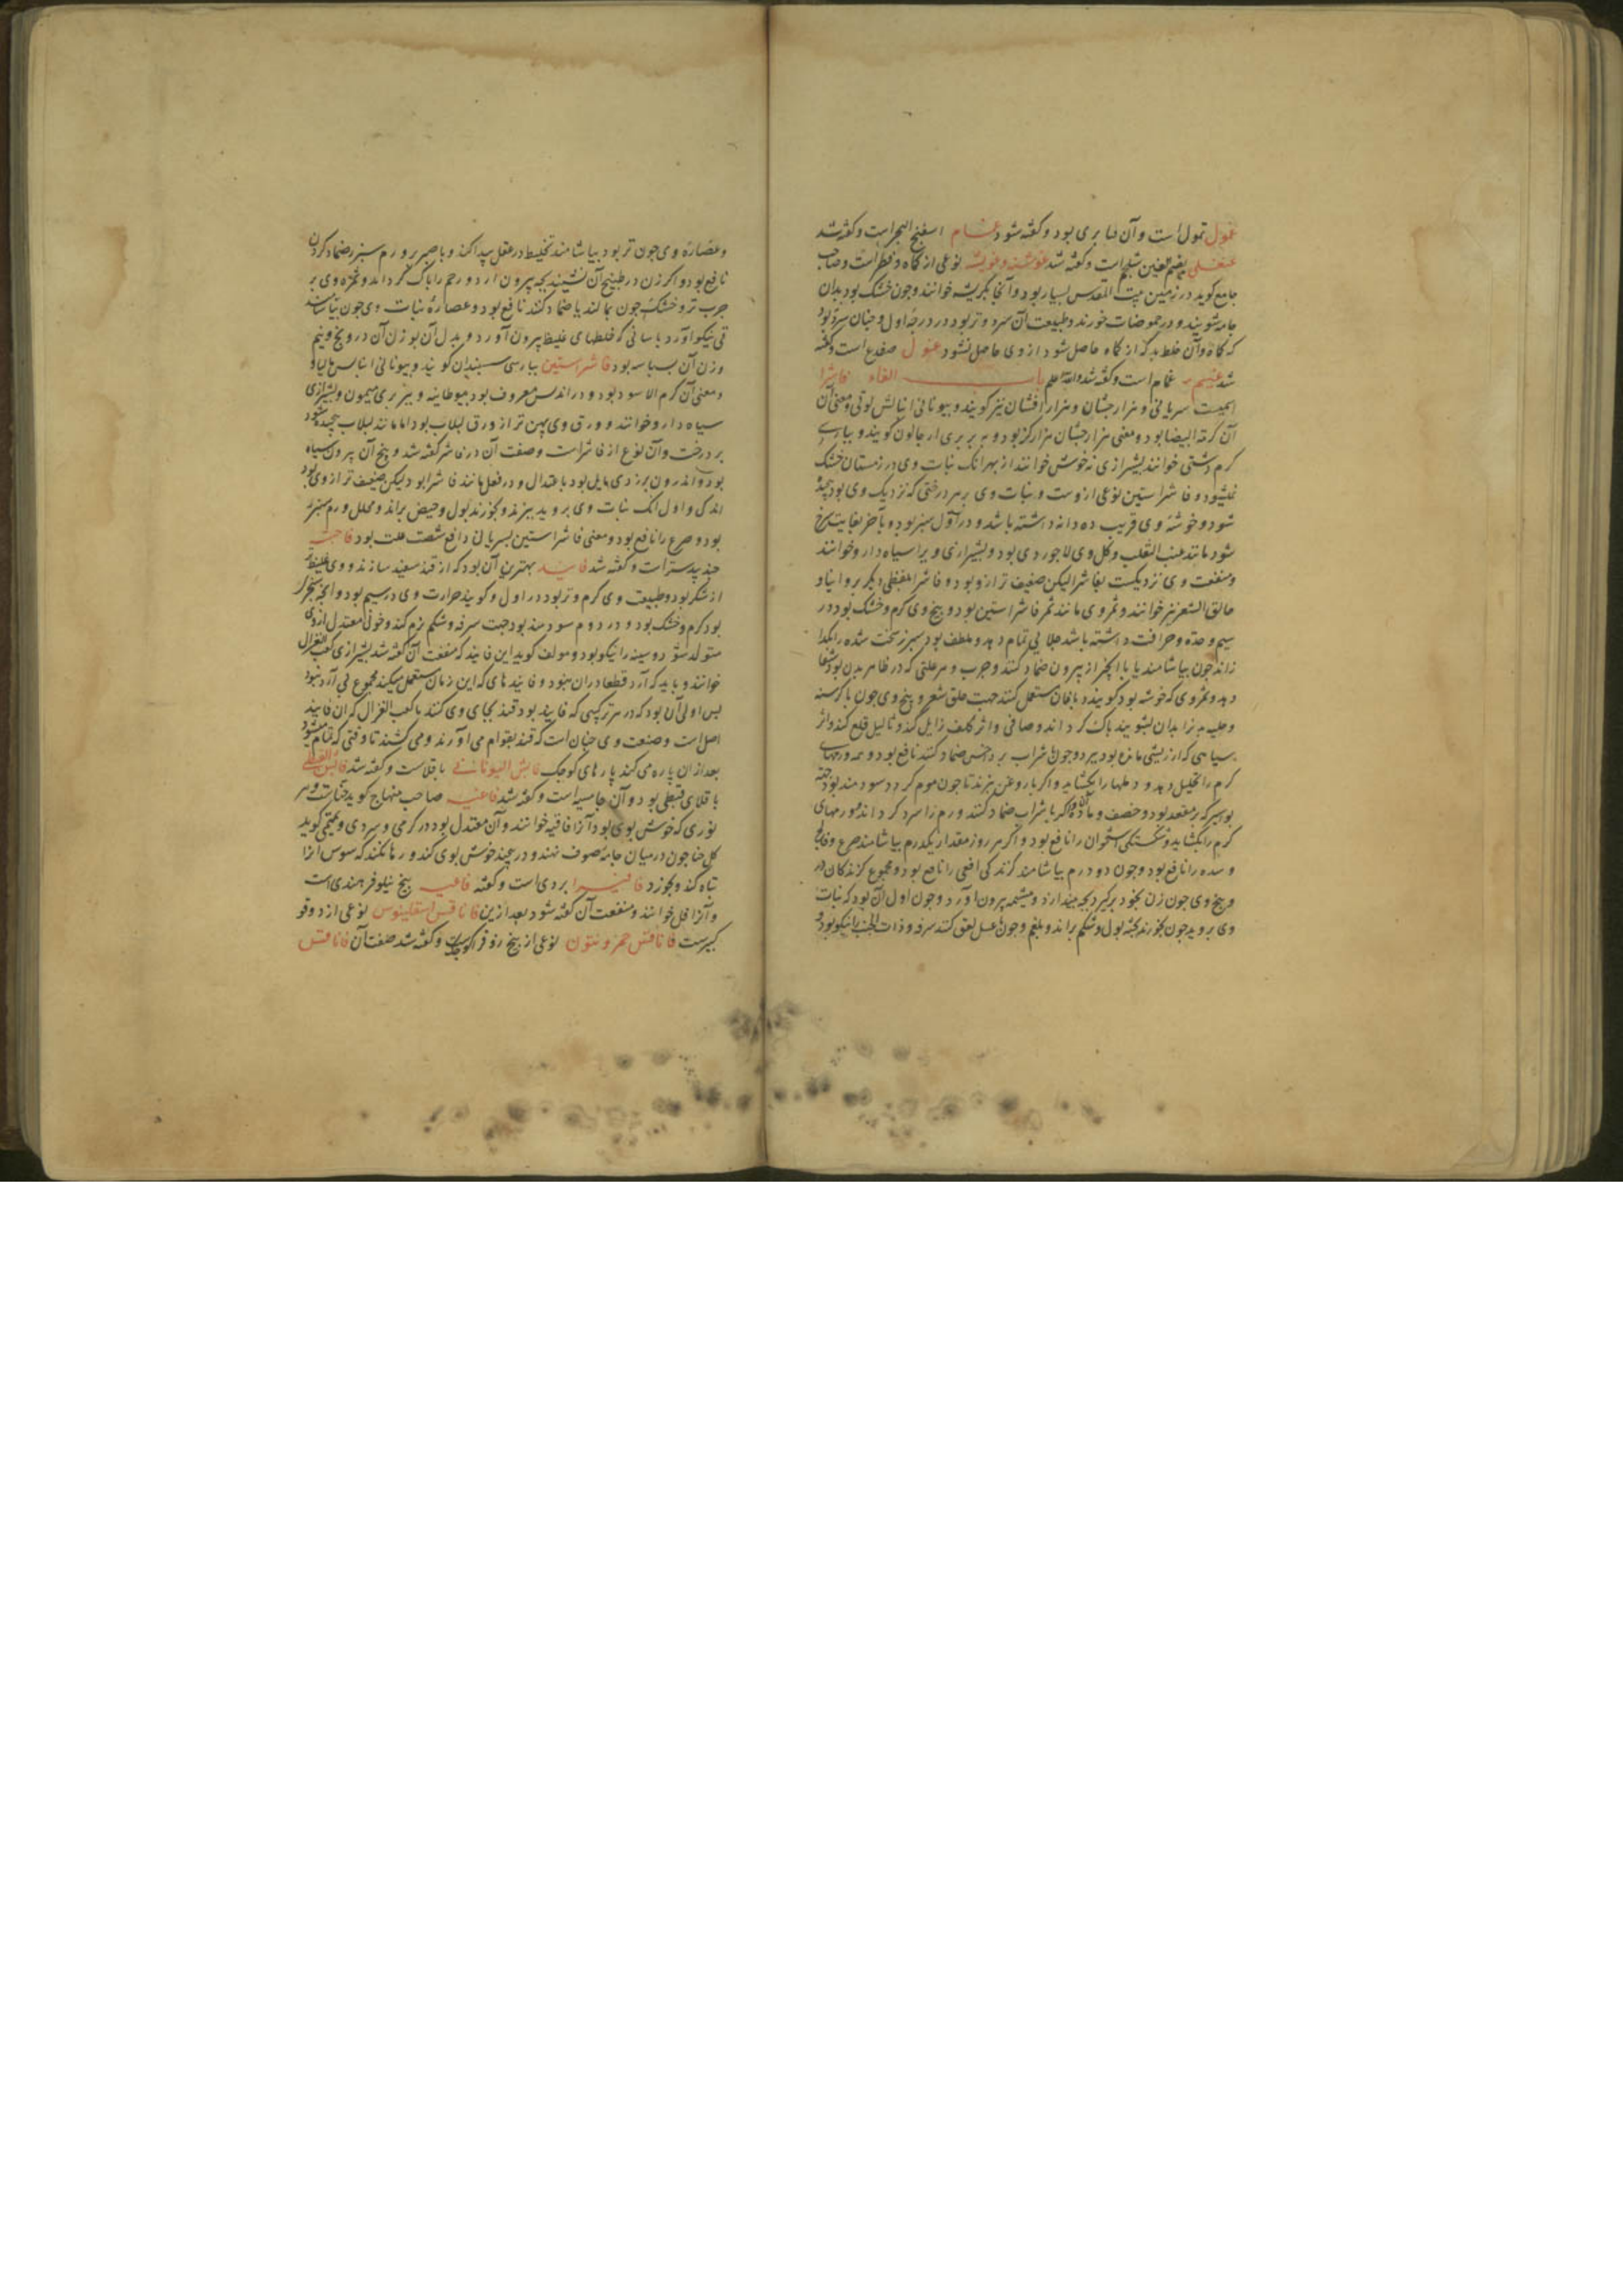 غول تمول است و آن قنا بری بود و گفته شود غسام اسفنج البحر است و گفته شد
بضم غین شلجم است و گفته شد غوشنه و غویشه نوعی از کماه و فطر است و صاحب
جامع کوید در زمین بیت المقدس بسیار بود و آنجا بکریشه خوانند و جون خشک بود بدان
جامه شویند و در حموضات خورند و طبیعت آن سرد و تر بود در درجه اول و جنان سرد بود
که کماه و آن خلط بد که از کماه حاصل شود از وی حاصل نشود غول ضفدع است و گفته
شد غیم غمام است و گفته شد والله اعلم باب الفاء فاشرا
سریانی و هزار جشان و هزار افشان نیز کویند و بیونانی و معنی آن
آن کرمة البیضا بود و معنی هزار جشان هزار کز بود و به بربری ار جالون کویند و بپارسی
کرم دشتی خوانند بشیرازی نه خوش خوانند از بهر انک نبات وی در زمستان خشک
نمیشود و فاشراستین نوعی از وست و نبات وی بر هر درختی که نزدیک وی بود بیجد
شود و خوشه وی قریب ده دانه داشته باشد و در اول سبز بود و بآخر بغایت سرخ
شود مانند عنب الثعلب و کل وی لاجوردی بود و بشیرازی ویرا سیاه دارو خوانند
و منفعت وی نزدیکست بفاشرا لیکن ضعیف تر ازو بود و فاشرا بلفظی دیکر
حالق الشعر نیز خوانند و ثمر وی مانند ثمر فاشراستین بود و بیخ وی کرم و خشک بود در
سیم و حدة و حرافت داشته باشد جلایی تمام دهد و ملطف بود سبرز سخت شده را بکدا
زاند جون بیاشامند یا با انجیر از بیرون ضماد کنند و جرب و هر علتی که در ظاهر بدن بود شفا
دهد و ثمر وی که خوشه بود کویند دباغان مستعمل کنند جهت حلق شعر و بیخ وی جون با کرسنه
و حلبه بدن را بدان بشویند پاک کرداند و صافی و اثر کلف زایل کند و ثالیل قلع کند و اثر
سیاهی که از ریشی مانده بود ببرد و جون با شراب بر داخس ضماد کنند نافع بود و ورمهای
کرم را تحلیل دهد و دملها را بکشاید و اکر با روغن بپزند تا جون موم کردد سودمند بود جهة
بواسیر که در مقعد بود و اکر با شراب ضماد کنند ورم را سرد کرداند و ورمهای
کرم را بکشاید و شکستکی استخوان را نافع بود و اکر هر روز مقدار یکدرم بیاشامند صرع و فالج
و سده را نافع بود و جون دو درم بیاشامند کزندکی افعی را نافع بود و مجموع کزندکان را
و بیخ وی جون زن بخود برکیرد بجه بیندازد و مشیمه بیرون آورد و جون اول آن بود که نبات
وی بروید جون بخورند پخته بول و شکم براند و بلغم و جون با عسل لعق کنند سرفه و ذات الجنب را نیکو بود
و عصاره وی جون تر بود بیاشامند تخلیط در عقل پیدا کند و با صبر بر ورم سبرز ضماد کردن
نافع بود و اکر زن در طبیخ آن نشیند بجه بیرون آرد و رحم را پاک کرداند و ثمره وی بر
جرب تر و خشک جون بمالند یا ضماد کنند نافع بود و عصاره نبات وی جون بیاشامند
قی نیکو آورد باسانی که خلطهای غلیظ بیرون آورد و بدل آن بوزن آن درونج و نیم
وزن آن بسباسه بود فاشراستین بپارسی سبندان کویند و بیونانی
و معنی آن کرم الاسود بود و در اندلس معروف بود ببوطانیه و ببربری میمون و بشیرازی
سیاه دارو خوانند و ورق وی پهن تر از ورق لبلاب بود اما مانند لبلاب پیچیده شود
بر درخت و آن نوع از فاشراست و صفت آن در فاشرا گفته شد و بیخ آن بیرون سیاه
بود و اندرون بزردی مایل بود باعتدال و در فعل مانند فاشرا بود لیکن ضعیف تر از وی بود
اندکی و اول انک نبات وی بروید ببزند و بخورند بول و حیض براند و محلل ورم سبرز
بود و صرع را نافع بود و معنی فاشراستین بسریانی دافع شصت علت بود فاجشه
جند بیدستر است و گفته شد فانید بهترین آن بود که از قند سفید سازند و وی غلیظتر
از شکر بود و طبیعت وی کرم و تر بود در اول و کویند حرارت وی در سیم بود و انچه سجزی
بود کرم و خشک بود و در دوم سودمند بود جهت سرفه و شکم نرم کند و خونی معتدل از وی
متولد شود و سینه را نیکو بود و مولف کوید این فانید که منفعت آن گفته شد بشیرازی کعب الغزال
خوانند و باید که آرد قطعا دران نبود و فانیدهای که این زمان مستعمل میکنند مجموع بی آرد نبود
بس اولی آن بود که در هر ترکیبی که فانید بود قند بجای وی کنند یا کعب الغزال که آن فانید
اصل است و صنعت وی جنان است که قند بقوام می آورند و می کشند تا وقتی که تمام میشود
بعد از ان پاره می کنند پارهای کوجک فابش الیونانی باقلاست و گفته شد فابش القبطی
باقلای قبطی بود و آن جامسه است و گفته شد فاغیه صاحب منهاج کوید حناست و هر
نوری که خوش بوی بود آنرا فاغیه خوانند و آن معتدل بود در کرمی و سردی و تمیمی کوید
کل حنا جون در میان جامه صوف نهند و در بیجند خوش بوی کند و رها نکند که سوس آنرا
تباه کند و بخورد فافیرا بردی است و گفته فاغیه بیخ نیلوفر هندی است
و آنرا فل خوانند و منفعت آن گفته شود بعد ازین فاناقس اسقلینوس نوعی از دوقو
کبیرست فاناقس خیرونیون نوعی از بیخ و گفته شد صفت آن فاناقس